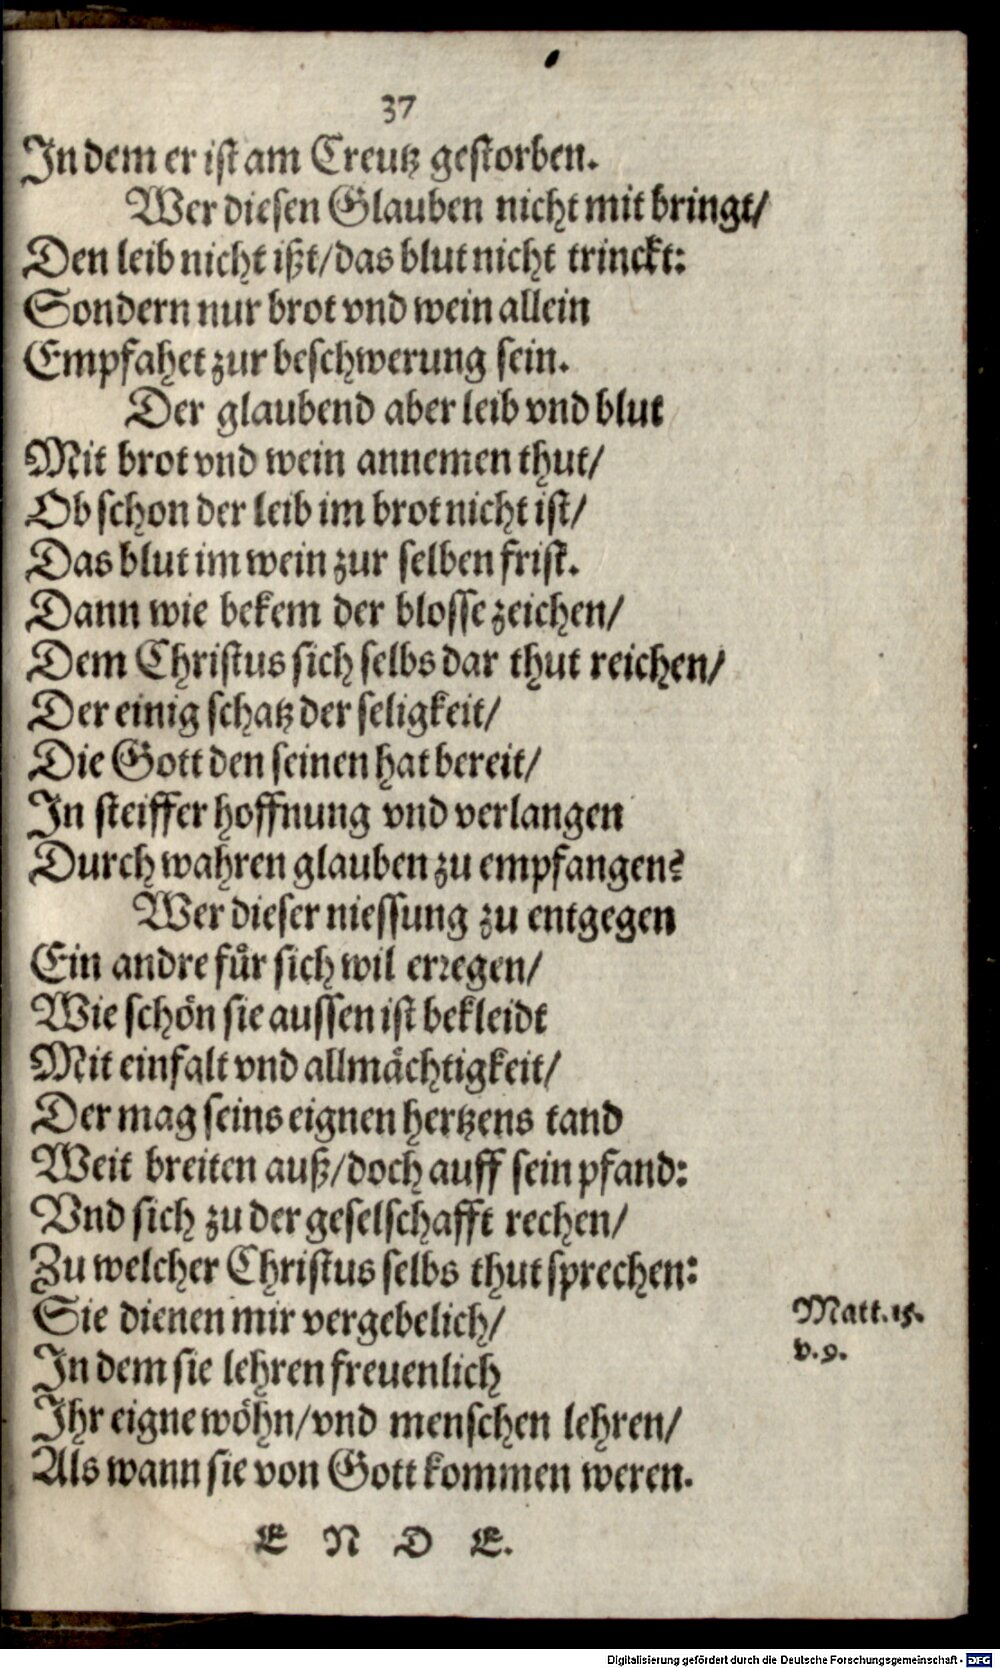 37
In dem er ist am Creutz gestorben.
Wer diesen Glauben nicht mit bringt/
Den leib nicht ißt/das blut nicht trinckt:
Sondern nur brot vnd wein allein
Empfahet zur beschwerung sein.
Der glaubend aber leib vnd blut
Mit brot vnd wein annemen thut/
Ob schon der leib im brot nicht ist/
Das blut im wein zur selben frist.
Dann wie bekem der blosse zeichen/
Dem Christus sich selbs dar thut reichen/
Der einig schatz der seligkeit/
Die Gott den seinen hat bereit/
In steiffer hoffnung vnd verlangen
Durch wahren glauben zu empfangen?
Wer dieser niessung zu entgegen
Ein andre fuͤr sich wil erregen/
Wie schoͤn sie aussen ist bekleidt
Mit einfalt vnd allmaͤchtigkeit/
Der mag seins eignen hertzens tand
Weit breiten auß/doch auff sein pfand:
Vnd sich zu der geselschafft rechen/
Zu welcher Christus selbs thut sprechen:
Sie dienen mir vergebelich/
Matt. 15.
v. 9.
In dem sie lehren freuenlich
Ihr eigne woͤhn/vnd menschen lehren/
Als wann sie von Gott kommen weren.
E N D E.
Digitalisierung gefördert durch die Deutsche Forschungsgemeinschaft - DFG